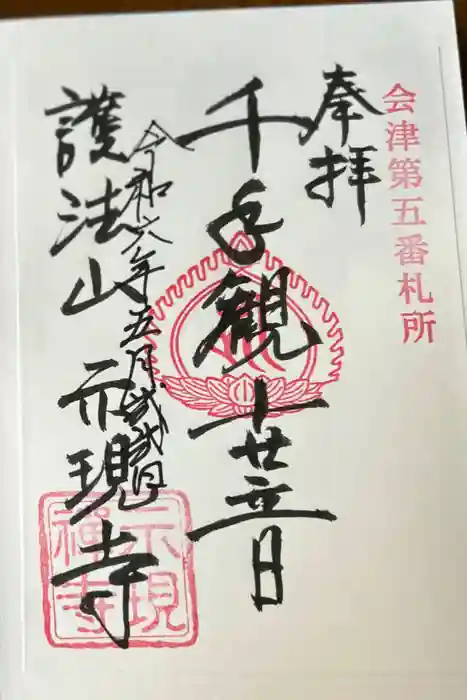 会津第五番札所
奉拝
千手観世音
令和六年五月日
護法山示現寺
示現
禪寺